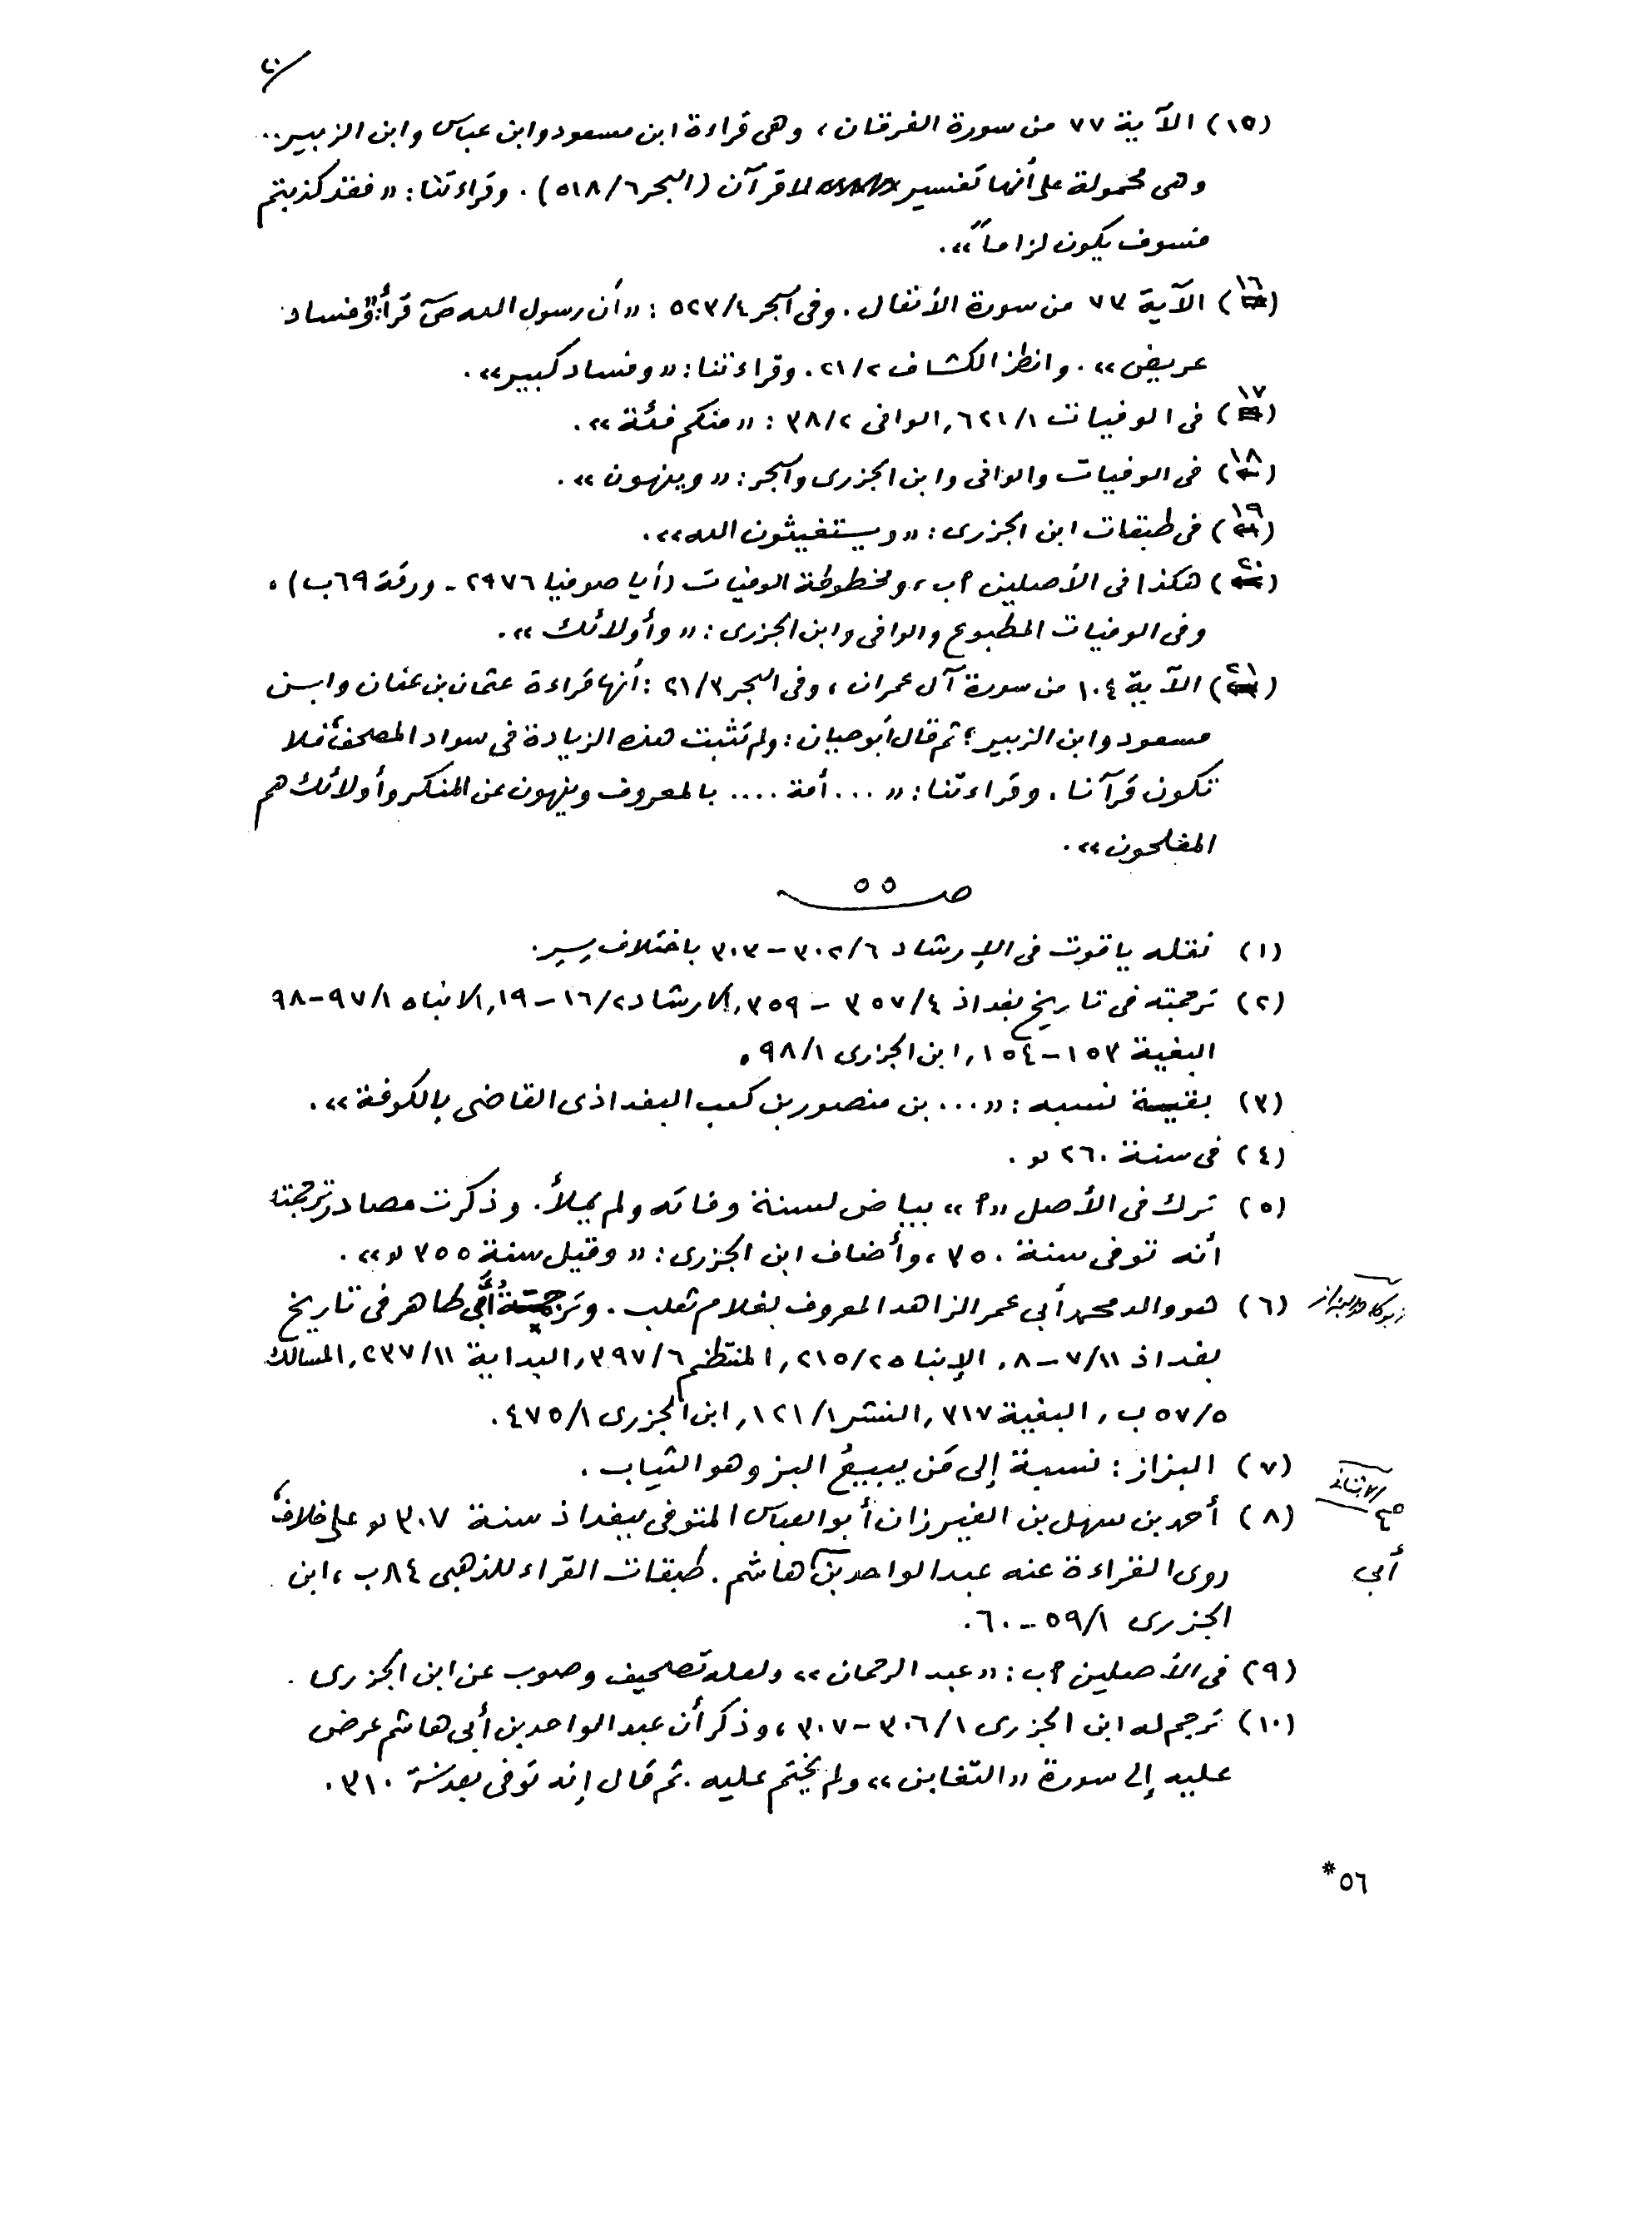 ٢٠
(١٥) الآية ٧٧ من سورة الفرقان، وهى قراءة ابن مسعود وابن عباس وابن الزبير..
وهى محمولة على أنها تفسير لا قرآن (البحر ٥١٨/٦). وقراءتنا: «فقد كذبتم
فسوف يكون لزاماً».
(١٦) الآية ٧٣ من سورة الأنفال. وفى البحر ٥٢٣/٤: «أن رسول الله ص قرأ: وفساد
عريض». وانظر الكشاف ٢١/٢. وقراءتنا: «وفساد كبير».
(١٧) فى الوفيات ٦٢١/١, الوافى ٣٨/٢: «منكم فئة».
(١٨) فى الوفيات والوافى وابن الجزرى والبحر: «وينهون».
(١٩) فى طبقات ابن الجزرى: «ويستغيثون الله».
(٢٠) هكذا فى الأصلين ٢ب، ومخطوطة الوفيات (أيا صوفيا ٢٩٧٦ - ورقة ٦٩ب)،
وفى الوفيات المطبوع والوافى وابن الجزرى: «وأولائك».
(٢١) الآية ١٠٤ من سورة آل عمران، وفى البحر ٢١/٣: أنها قراءة عثمان بن عفان وابن
مسعود وابن الزبير؛ ثم قال أبو حيان: ولم تثبت هذه الزيادة فى سواد المصحف، فلا
تكون قرآنا. وقراءتنا: «... أمة .... بالمعروف وينهون عن المنكر وأولائك هم
المفلحون».
صـ ٥٥
(١) نقله ياقوت فى الإرشاد ٣٠٢/٦ - ٣٠٣ باختلاف يسير.
(٢) ترجمته فى تاريخ بغداذ ٣٥٧/٤ - ٣٥٩, الارشاد ١٦/٢ - ١٩, الانباه ٩٧/١ - ٩٨
البغية ١٥٣ - ١٥٤, ابن الجزرى ٩٨/١.
(٣) بقية نسبه: «... بن منصور بن كعب البغداذى القاضى بالكوفة».
(٤) فى سنة ٢٦٠ هـ.
(٥) ترك فى الأصل «٢» بياض لسنة وفاته ولم يملأ. وذكرت مصادر ترجمته
أنه توفى سنة ٣٥٠، وأضاف ابن الجزرى: «وقيل سنة ٣٥٥ هـ».
(٦) هو والد محمد أبى عمر الزاهد المعروف بغلام ثعلب. وترجمة أبى طاهر فى تاريخ
بغداذ ٧/١١ - ٨, الإنباه ٢١٥/٢, المنتظم ٣٩٧/٦, البداية ٢٣٧/١١, المسالك
٥٧/٥ ب, البغية ٣١٧, النشر ١٢١/١, ابن الجزرى ٤٧٥/١.
(٧) البزاز: نسبة إلى من يبيع البز وهو الثياب.
(٨) أحمد بن سهل بن الفيرزان أبو العباس المتوفى ببغداذ سنة ٣٠٧ هـ على خلاف،
روى القراءة عنه عبد الواحد بن هاشم. طبقات القراء للذهبى ٨٤ب، ابن
أبى
الجزرى ٥٩/١ - ٦٠.
(٩) فى الأصلين ٢ب: «عبد الرحمان» ولعله تصحيف وصوب عن ابن الجزرى.
(١٠) ترجم له ابن الجزرى ٣٠٦/١ - ٣٠٧، وذكر أن عبد الواحد بن أبى هاشم عرض
عليه إلى سورة «التغابن» ولم يختم عليه. ثم قال إنه توفى بعد سنة ٣١٠.
٥٦*